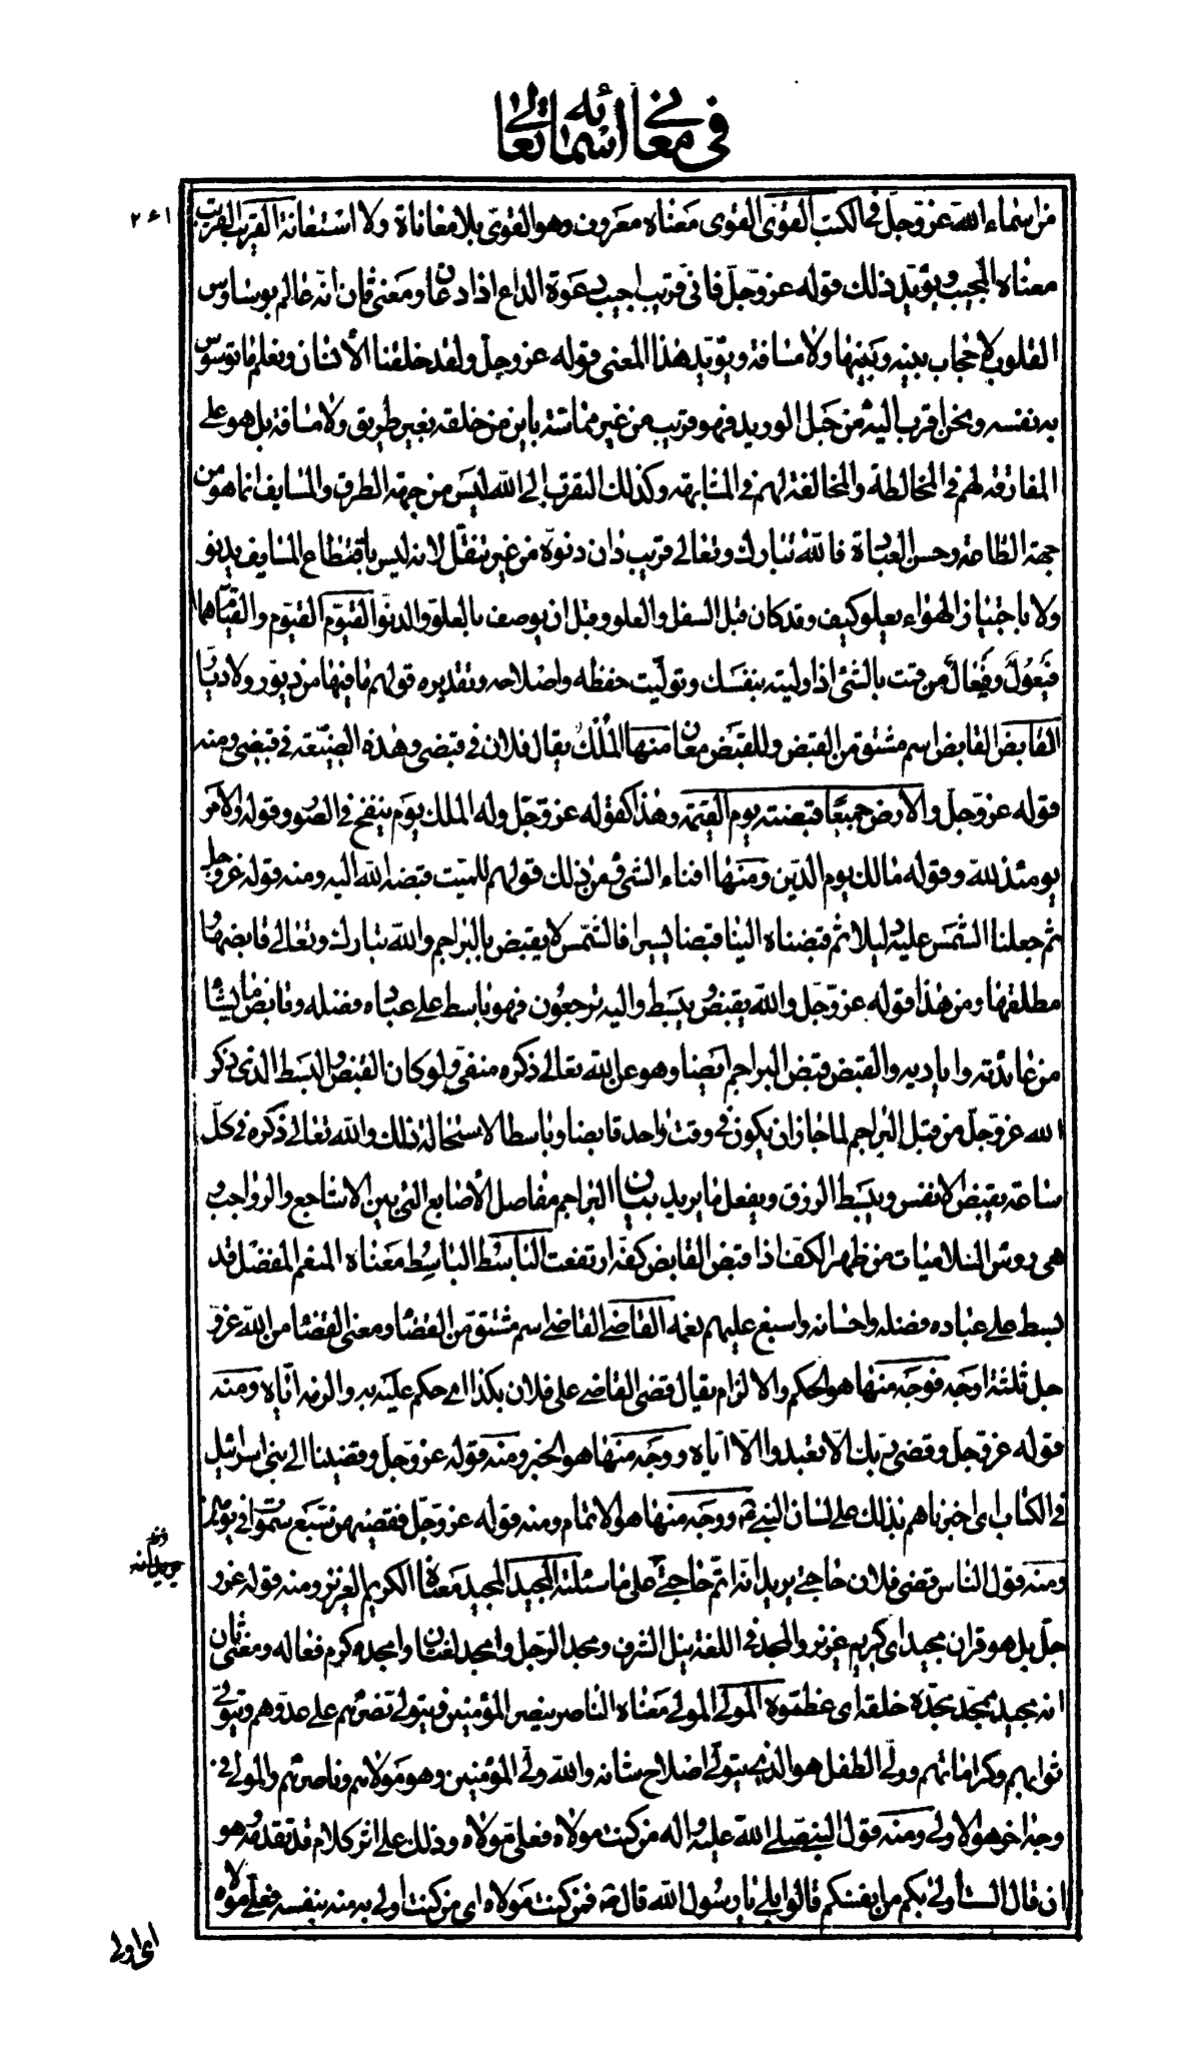 في معاني أسمائه تعالى
من اسماء الله عز وجل في الكتب القوى القوى معناه معروف وهو القوى بلا معاناة ولا استعانة القريب القريب
معناه المجيب ويؤيد ذلك قوله عز وجل فاني قريب اجيب دعوة الداع اذا دعان ومعنى ثان انه عالم بوساوس
القلوب لا حجاب بينه وبينها ولا مسافة ويؤيد هذا المعنى قوله عز وجل ولقد خلقنا الأنسان ونعلم ما توسوس
به نفسه ونحن اقرب اليه من حبل الوريد فهو قريب من غير مماسة باين من خلقه بغير طريق ولا مسافة بل هو على
المفارقة لهم في المخالطة والمخالفة لهم في المشابهة وكذلك التقرب إلى الله ليس من جهة الطرق والمسايف انما هو من
جهة الطاعة وحسن العبادة فالله تبارك وتعالى قريب دان دنوه من غير تنقل لانه ليس باقتطاع المسايف يدنو
ولا باجتياز الهواء يعلو كيف وقد كان قبل السفل والعلو وقبل ان يوصف بالعلو والدنو القيوم القيوم والقيام هما
فيعول وفيعال من قمت بالشئ اذا وليته بنفسك وتوليت حفظه واصلاحه وتقديره قولهم ما فيها من ديور ولا ديار
القابض القابض اسم مشتق من القبض وللقبض معان منها الملك يقال فلان في قبضي وهذه الضيعة في قبضي ومنه
قوله عز وجل والأرض جميعا قبضته يوم القيمة وهذا كقوله عز وجل وله الملك يوم ينفخ في الصور وقوله والامر
يومئذ لله وقوله مالك يوم الدين ومنها افناء الشئ من ذلك قولهم للميت قبضه الله اليه ومنه قوله عز وجل
ثم جعلنا الشمس عليه دليلا ثم قبضناه الينا قبضا يسيرا فالشمس لا يقبض بالبراجم والله تبارك وتعالى قابضها و
مطلقها ومن هذا قوله عز وجل والله يقبض ويبسط واليه ترجعون فهو باسط على عباده فضله وقابض ما يشاء
من عائدته واياديه والقبض قبض البراجم ايضا وهو عن الله تعالى ذكره منفي ولو كان القبض والبسط الذي ذكر
الله عز وجل من قبل البراجم لما جاز ان يكون في وقت واحد قابضا وباسطا لاستحالة ذلك والله تعالى ذكره في كل
ساعة يقبض الانفس ويبسط الرزق ويفعل ما يريد بيان البراجم مفاصل الأصابع التي بين الاشاجع والرواجب و
هي رؤس السلاميات من ظهر الكف اذا قبض القابض كفه ارتفعت الباسط الباسط معناه المنعم المفضل قد
بسط على عباده فضله واحسانه واسبغ عليهم نعمه القاضي القاضي اسم مشتق من القضاء ومعنى القضاء من الله عز و
جل ثلثة اوجه فوجه منها هو الحكم والالزام يقال قضى القاضي على فلان بكذا اي حكم عليه به والزمه اياه ومنه
قوله عز وجل وقضى ربك الا تعبدوا الا اياه ووجه منها هو الخبر ومنه قوله عز وجل وقضينا الى بني اسرائيل
في الكتاب اي اخبرناهم بذلك على لسان النبي ص ووجه منها هو الاتمام ومنه قوله عز وجل فقضيهن سبع سموات في يومين
ومنه قول الناس قضى فلان حاجتي يريد انه اتم حاجتي على ما سئلته المجيد المجيد معناه الكريم العزيز ومنه قوله عز و
جل بل هو قران مجيد اي كريم عزيز والمجد في اللغة نيل الشرف ومجد الرجل وامجد لغتان وامجده كرم فعاله ومعنى ثان
انه مجيد ممجد مجده خلقه اي عظموه المولى المولى معناه الناصر ينصر المؤمنين ويتولى نصرهم على عدوهم ويتولى
ثوابهم وكراماتهم وولي الطفل هو الذي يتولى اصلاح شانه والله ولي المؤمنين وهو مولاهم وناصرهم والمولى في
وجه اخر هو الاولى ومنه قول النبي صلى الله عليه واله من كنت مولاه فعلي مولاه وذلك على اثر كلام قد تقدمه هو
ان قال الست أولى بكم من انفسكم قالوا بلى يا رسول الله قال ص فمن كنت مولاه اي من كنت اولى به منه بنفسه فعلي مولاه
اي اولى